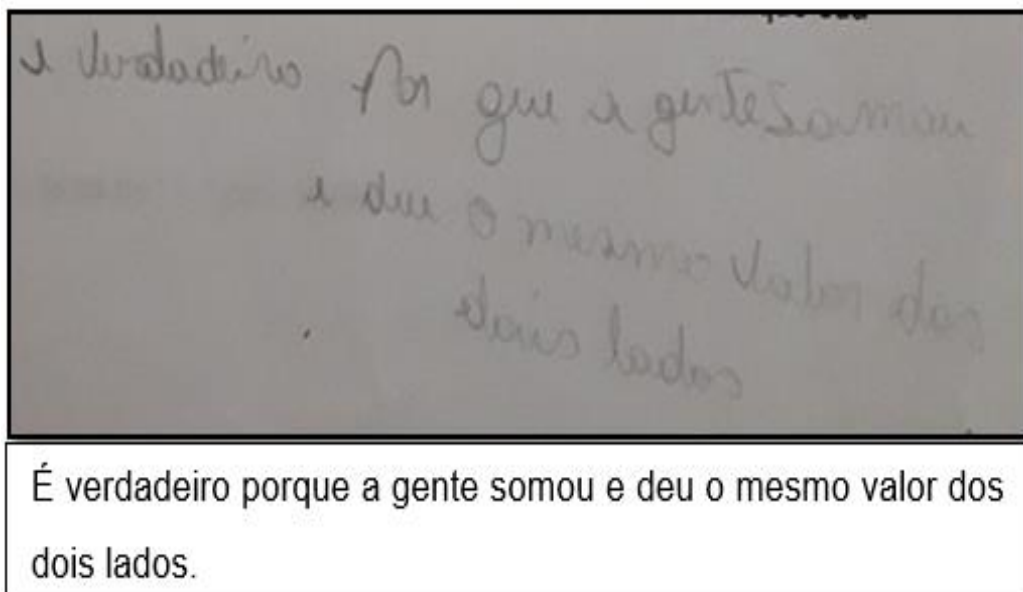 e verdadeiro Por que a gente Somou
e deu o mesmo valor dos
dois lados
É verdadeiro porque a gente somou e deu o mesmo valor dos
dois lados.